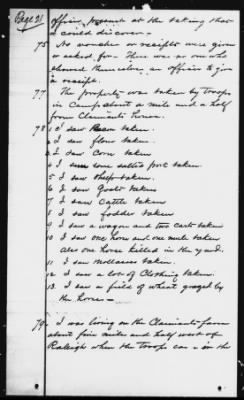 Page 21
officer present at the taking that
I could discover -
75 No voucher or receipts were given
or asked for - There was no one who
showed themselves an officer to give
a receipt.
77 The property was taken by troops
in camp about a mile and a half
from Claimants house.
78 1 I saw Bacon taken.
2 I saw flour taken.
3 I saw Corn taken
4 I some salted pork taken
5 I saw Sheep taken.
6 I saw Goats taken
7 I saw Cattle taken
8 I saw fodder taken
9 I saw a wagon and two carts taken
10 I saw one horse and one mule taken
also one horse killed in the yard.
11 I saw Mollasses taken.
12 I saw a lot of Clothing taken.
13 I saw a field of wheat grazed by
the horses -
79. I was living on the Claimants farm
about five miles and half west of
Raleigh when the troops ca - in the